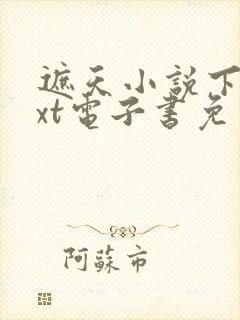 遮天小説下
xt電子書免
阿蘇市